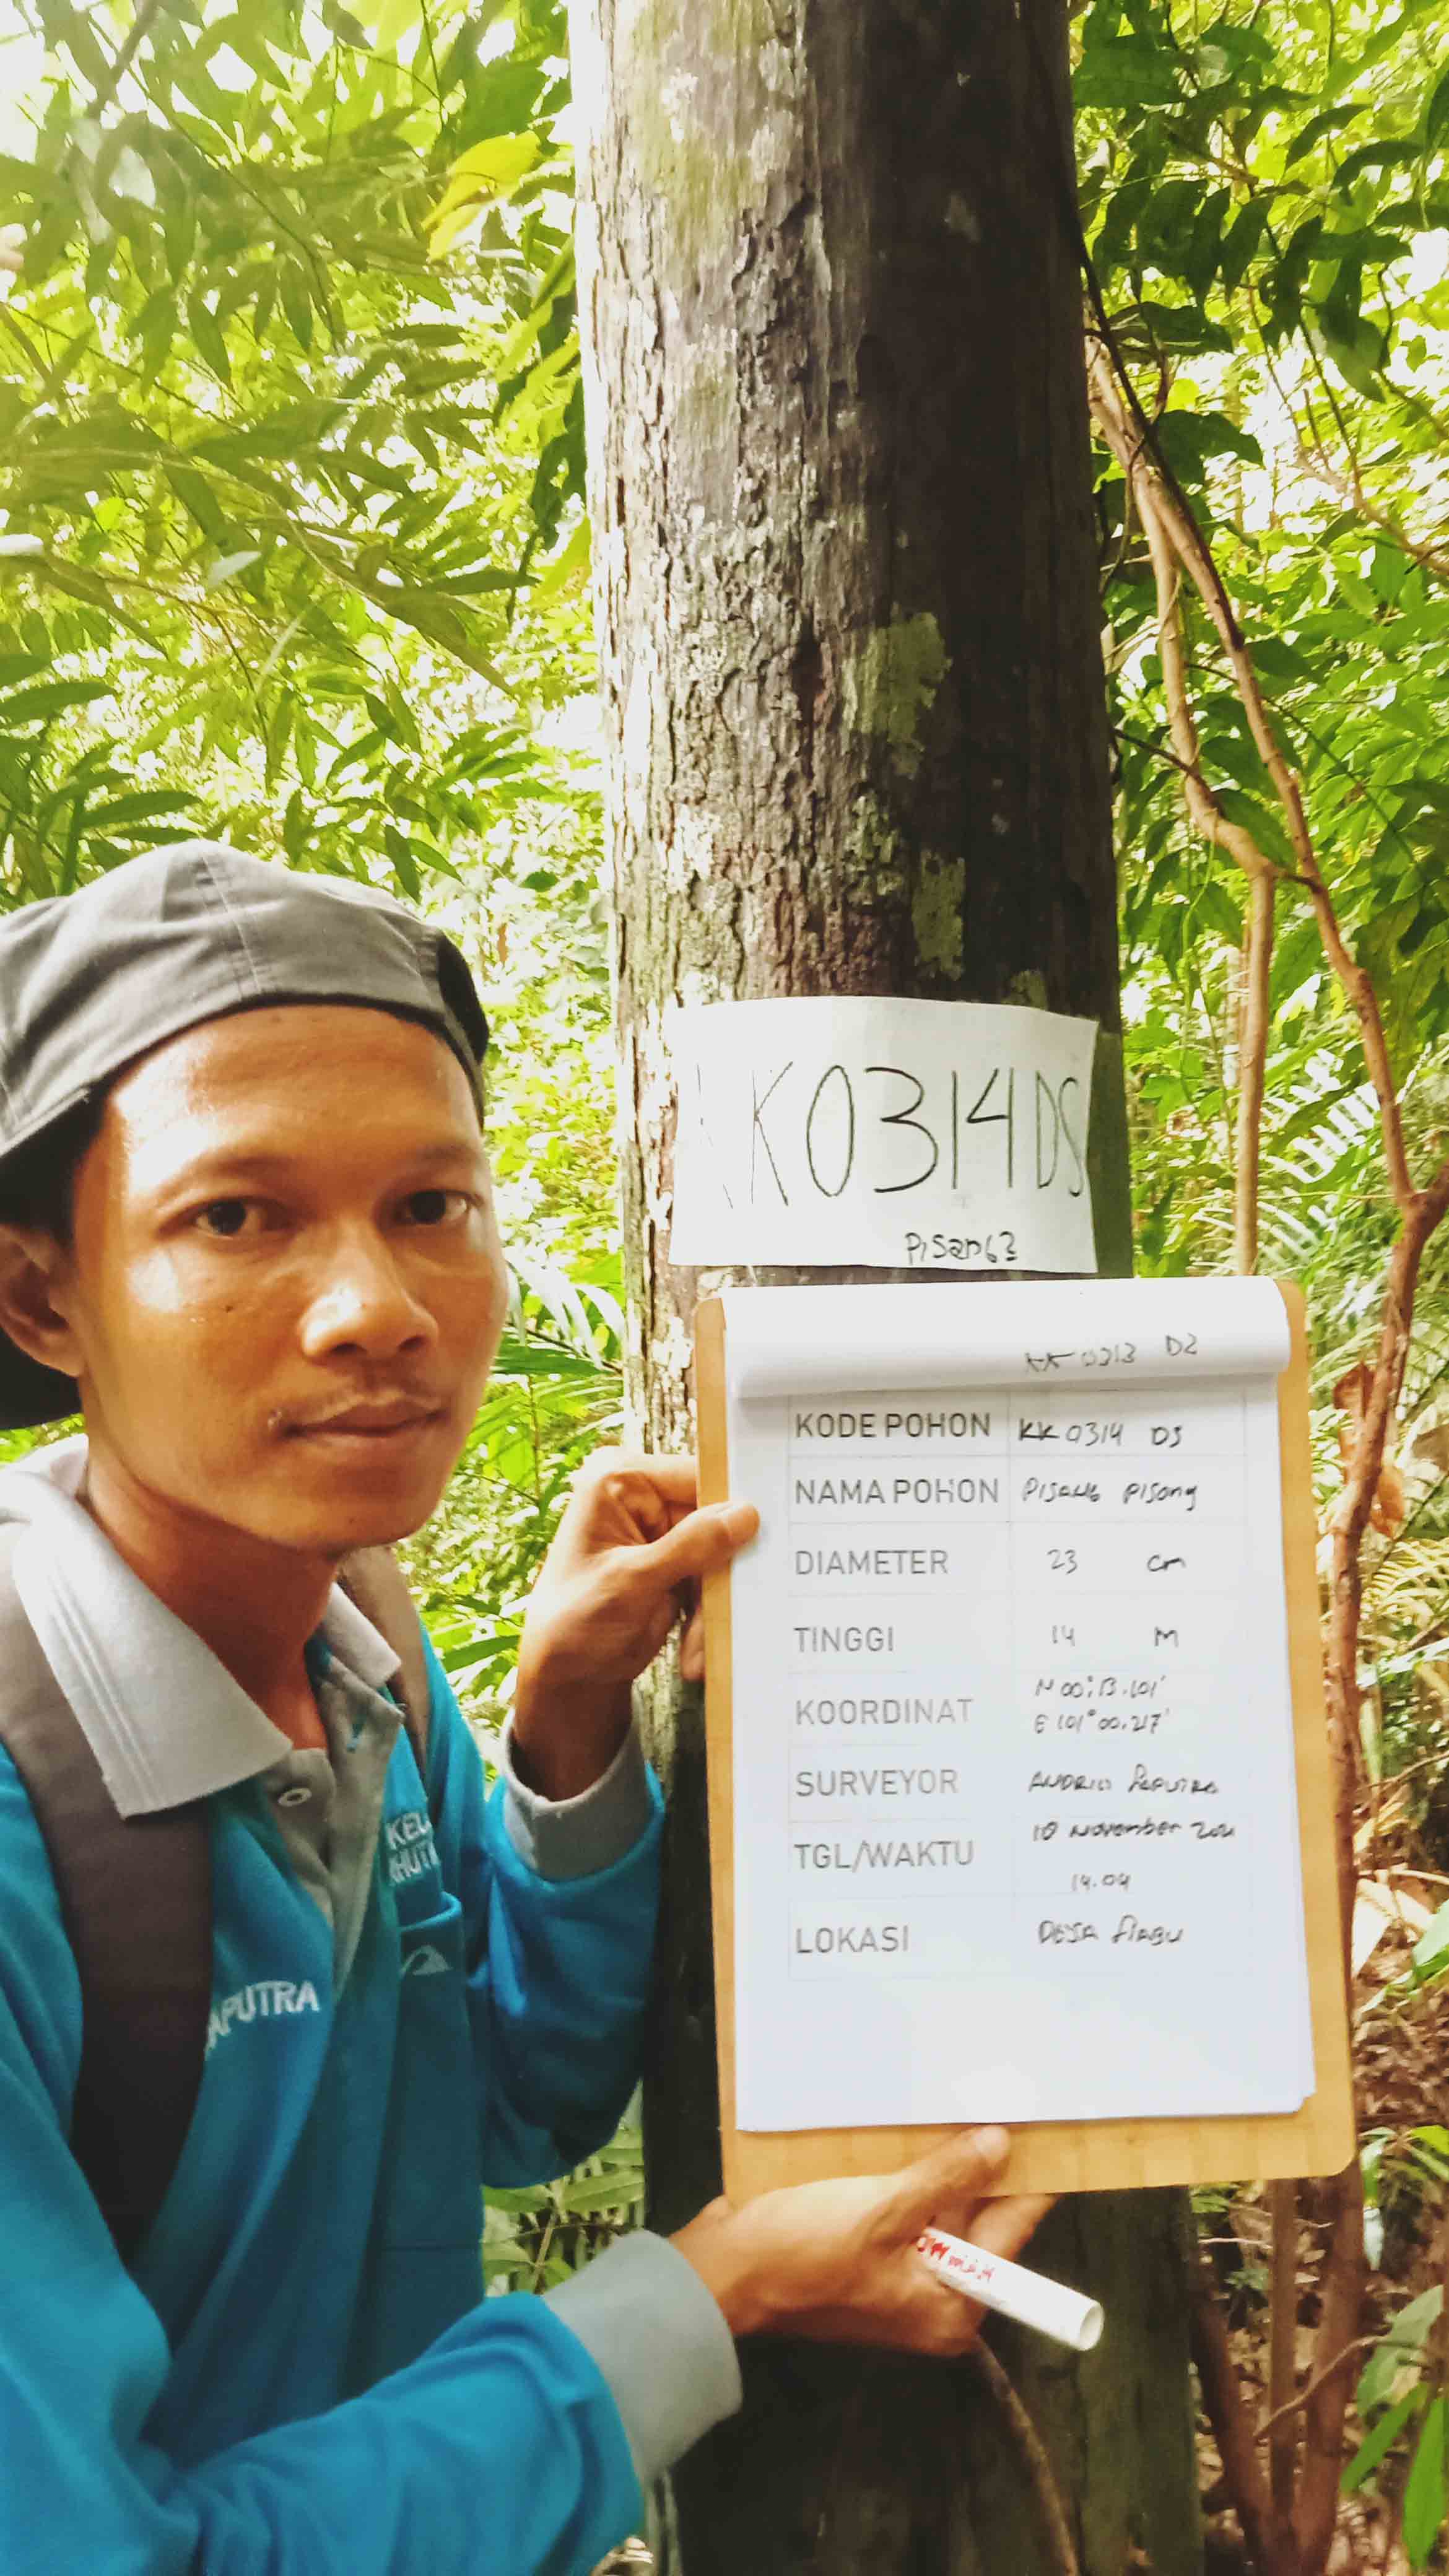 KK0314DS
PISANG
KK 0313 DS
KODE POHON KK 0314 DS
NAMA POHON PISANG PISANG
DIAMETER 23 cm
TINGGI 14 M
KOORDINAT N 00°.13.101'
E 101°00.217'
SURVEYOR SAPUTRA
TGL/WAKTU 10 November 2021
14.04
LOKASI DESA
KEL
HUT
APUTRA